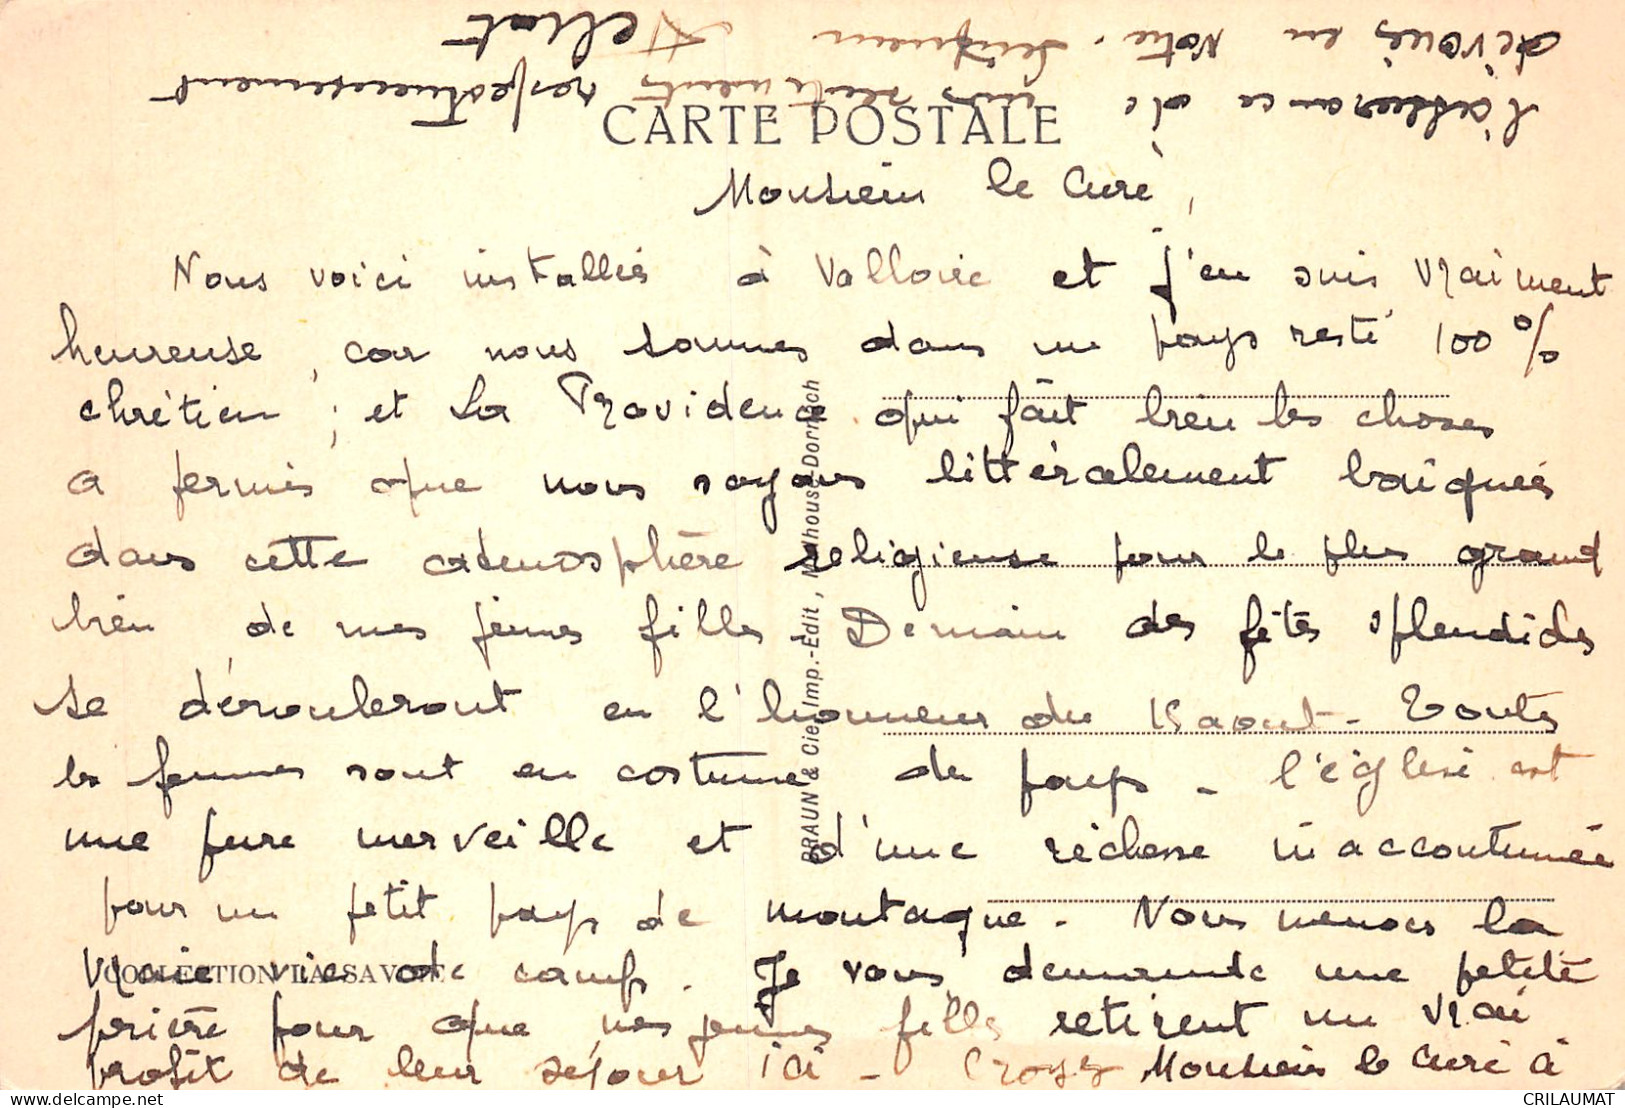 CARTE POSTALE
Monsieur le Curé,
Nous voici installées à Valloire et j'en suis vraiment
heureuse, car nous sommes dans un pays resté 100%
chrétien ; et la Providence qui fait bien les choses
a permis que nous soyons littéralement baignées
dans cette atmosphère religieuse pour le plus grand
bien de mes jeunes filles - Demain des fêtes splendides
se dérouleront en l'honneur du 15 aout - Toutes
les femmes sont en costume du pays - l'église est
une pure merveille et d'une richesse inaccoutumée
pour un petit pays de montagne. Nous menons la
vraie vie de camp. Je vous demande une petite
prière pour que nos jeunes filles retirent un vrai
profit de leur séjour ici - Croyez Monsieur le Curé à
l'assurance de mes sentiments respectueusement
dévoués en Notre-Seigneur
BRAUN & Cie, Imp.-Edit, Mulhouse-Dornach
COLLECTION LA SAVOIE
CRILAUMAT